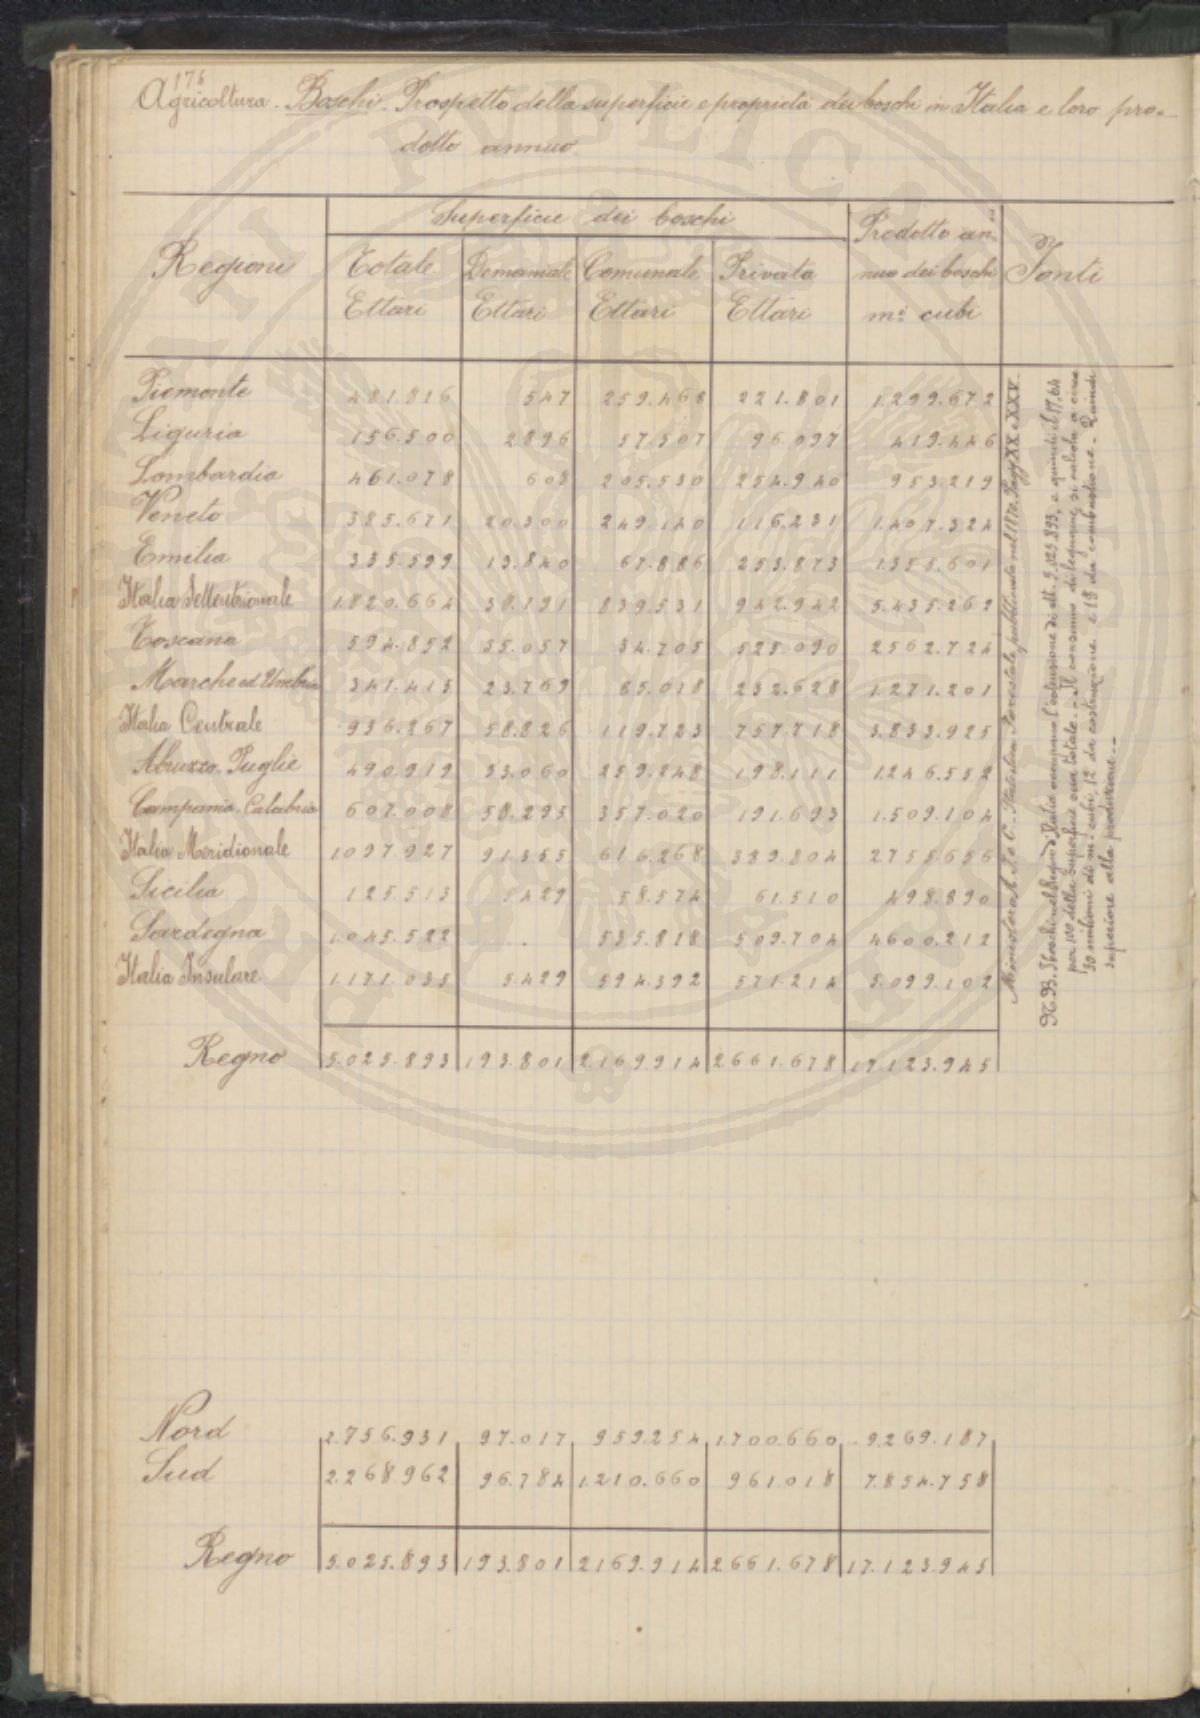 176
Agricoltura. Boschi. Prospetto della superficie e proprietà dei boschi in Italia e loro pro-
dotto annuo.
Regioni | Superficie dei boschi | Prodotto an- | Fonti
Totale | Demaniale | Comunale | Privata | nuo dei boschi
Ettari | Ettari | Ettari | Ettari | mi cubi
Piemonte 481.816 547 259.468 221.801 1.299.672
Liguria 156.500 2896 57.507 96.097 419.446
Lombardia 461.078 608 205.530 254.940 953.219
Veneto 385.671 20.300 249.140 116.231 1.407.324
Emilia 335.599 13.840 67.886 253.873 1.355.601
Italia Settentrionale 1.820.664 38.191 839.531 942.942 5.435.262
Toscana 594.852 35.057 34.705 525.090 2562.724
Marche ed Umbria 341.415 23.769 85.018 232.628 1.271.201
Italia Centrale 936.267 58.826 119.723 757.718 3.833.925
Abruzzo. Puglie 490.919 33.060 259.248 198.111 1.246.552
Campania. Calabria 607.008 58.295 357.020 191.693 1.509.104
Italia Meridionale 1097.927 91.355 616.268 389.804 2755.656
Sicilia 125.513 5429 58.574 61.510 498.890
Sardegna 1.045.522 .. 535.818 509.704 4600.212
Italia Insulare 1.171.035 5.429 594.392 571.214 5.099.102
Regno 5.025.893 193.801 2.169.914 2661.678 17.123.945
Ministero A. I. e C. Statistica Forestale pubblicata nel 1870. Pagg XX e XXV.
N.B. I boschi nel Regno d'Italia occupano l'estensione di ett. 5.025.893, e quindi il 17,64
per 100 della superficie sua totale. - Il consumo di legname si calcola a circa
30 milioni di m. cubi, 12 da costruzione e 18 da combustione. - Quindi
superiore alla produzione. -
Nord 2.756.931 97.017 959.254 1.700.660 9.269.187
Sud 2.268.962 96.784 1.210.660 961.018 7.854.758
Regno 5.025.893 193.801 2169.914 2661.678 17.123.945